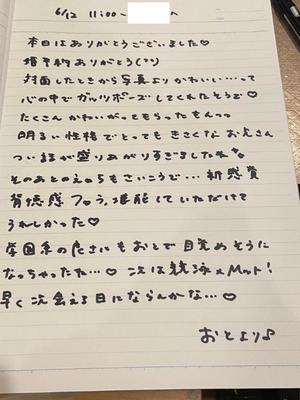 6/12 11:00~ へ
本日はありがとうございました♡
指予約ありがとう(^^)
対面したときから写真よりかわいい…って
心の中でガッツポーズしてくれたそうで♡
たくさんかわいがってもらったもんっっ
明るい性格でとってもきさくなお兄さん
つい話が盛りあがりすぎましたね
そのあとのえ〇ちもさいこうで…新感覚
背徳感フ〇ラ、堪能していただけて
うれしかった♡
学園系の良さにもおとで目覚めそうに
なっちゃったね…♡ 次は競泳×Mット!
早く次会える日にならんかな…♡
おとより♪